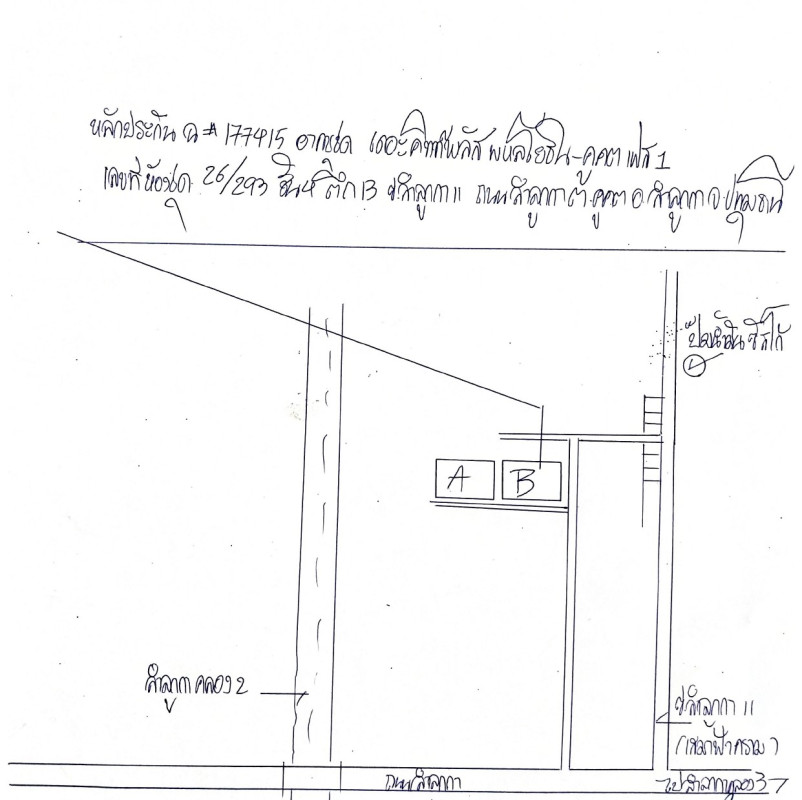 หลักประกัน ฉ#177415 อาคารชุด เดอะคิทท์พลัส พหลโยธิน-คูคต เฟส 1
เลขที่ห้องชุด 26/293 ชั้นที่ ตึก B ซ.ลำลูกกา 11 ถนนลำลูกกา ต.คูคต อ.ลำลูกกา จ.ปทุมธานี
ปั๊มน้ำมันซัสโก้
A B
ลำลูกกาคลอง 2
ซ.ลำลูกกา 11
(เสมาฟ้าคราม)
ถนนลำลูกกา
ไปลำลูกกาคลอง 3